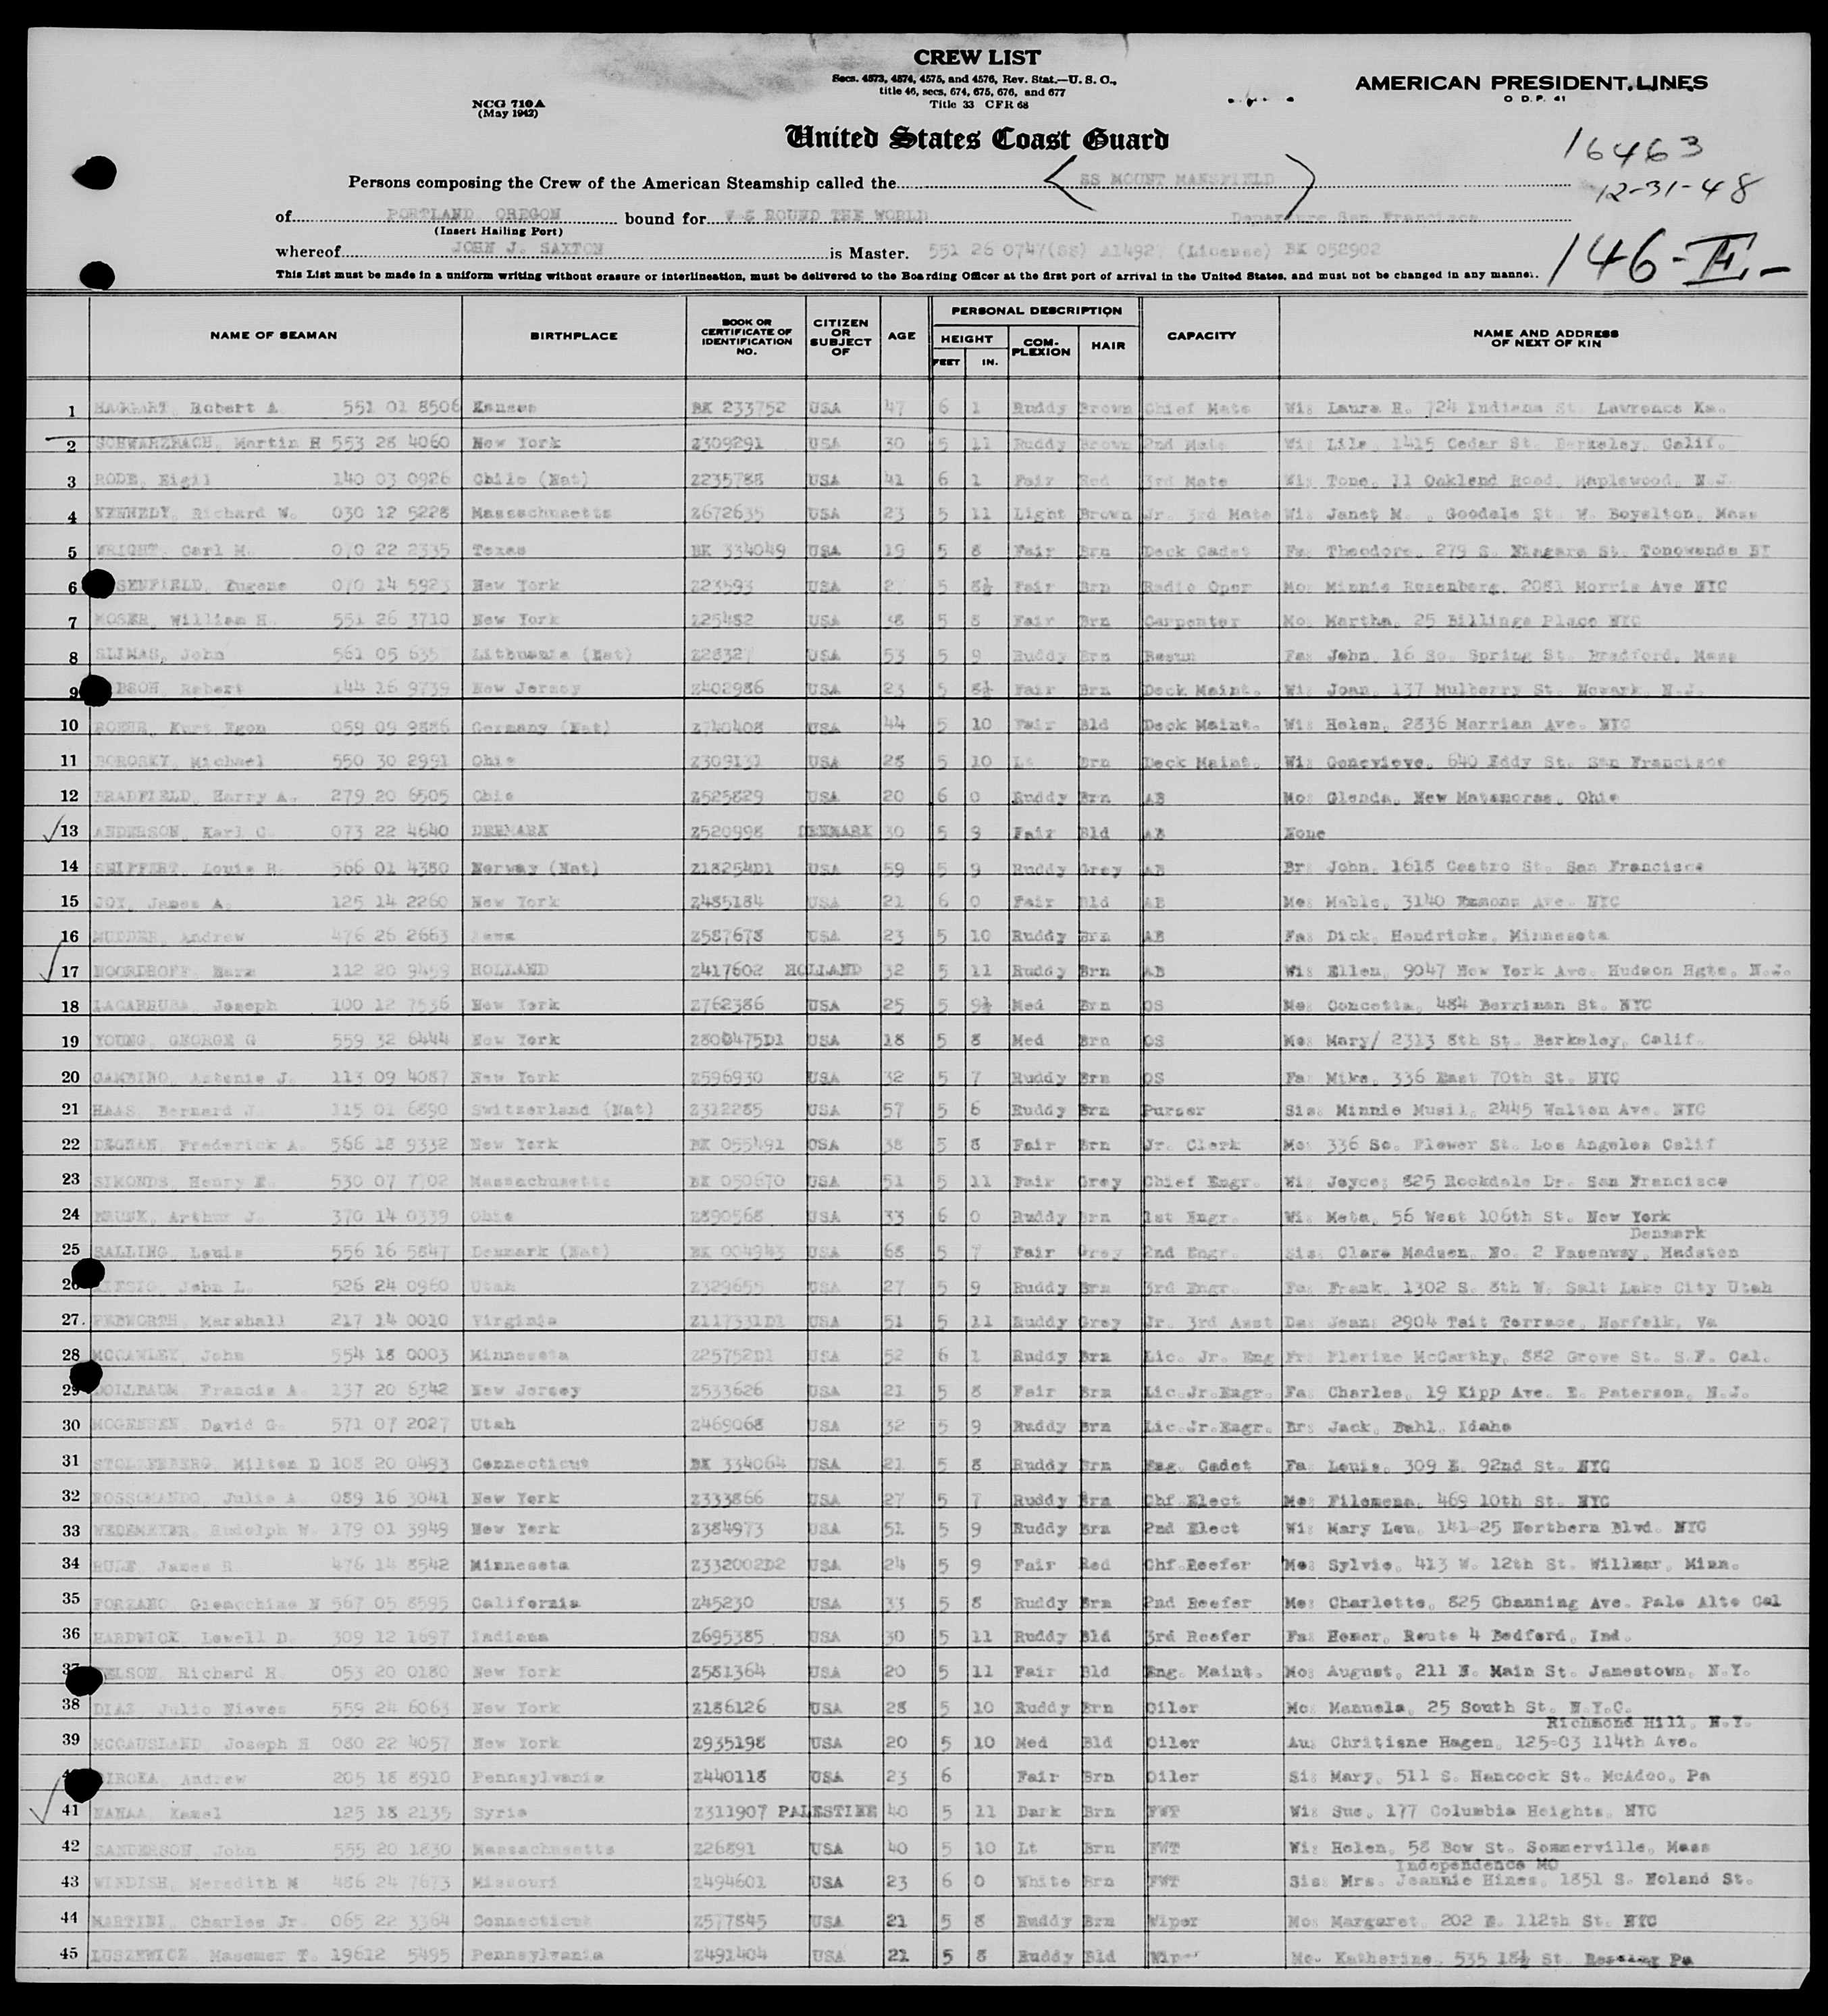 CREW LIST
Secs. 4573, 4574, 4575, and 4576, Rev. Stat.—U. S. C.,
title 46, secs, 674, 675, 676, and 677
Title 33 CFR 68
NCG 710A
(May 1942)
AMERICAN PRESIDENT LINES
O D.P. 41
United States Coast Guard
16463
12-31-48
Persons composing the Crew of the American Steamship called the SS MOUNT MANSFIELD
of PORTLAND OREGON bound for ROUND THE WORLD Departure San Francisco
(Insert Hailing Port)
whereof JOHN J. SAXTON is Master. 551 26 0747(SS) (License) BK 052902
146-II-
This List must be made in a uniform writing without erasure or interlineation, must be delivered to the Boarding Officer at the first port of arrival in the United States, and must not be changed in any manner.
NAME OF SEAMAN BIRTHPLACE BOOK OR CERTIFICATE OF IDENTIFICATION NO. CITIZEN OR SUBJECT OF AGE PERSONAL DESCRIPTION HEIGHT FEET IN. COM-PLEXION HAIR CAPACITY NAME AND ADDRESS OF NEXT OF KIN
1 Robert A. 551 01 8506 Kansas BK 233752 USA 47 6 1 Ruddy Brown Chief Mate Wi: Laura R. 724 Indiana St. Lawrence Ka.
2 SCHWARZBACH, Martin H 553 28 4060 New York Z309291 USA 30 5 11 Ruddy Brown 2nd Mate Wi: Lila, 1415 Cedar St. Berkeley, Calif.
3 RODE, Eigil 140 03 0926 Chile (Nat) Z235788 USA 41 6 1 Fair Red 3rd Mate Wi: Tone, 11 Oakland Road, Maplewood, N.J.
4 KENNEDY, Richard W. 030 12 5228 Massachusetts Z672635 USA 23 5 11 Light Brown Jr. 3rd Mate Wi: Janet M. , Goodale St. W. Boyslton, Mass
5 WRIGHT, Carl M. 070 22 2335 Texas BK 334049 USA 19 5 8 Fair Brn Deck Cadet Fa: Theodore, 279 S. Niagara St. Tonowanda
6 SENFIELD, Eugene 070 14 5923 New York Z23593 USA 5 8½ Fair Brn Radio Oper Mo: Minnie Rosenberg, 2081 Morris Ave NYC
7 MOSER, William H. 551 26 3710 New York Z25482 USA 38 5 8 Fair Brn Carpenter Mo: Martha, 25 Billings Place NYC
8 SLIMAS, John 561 05 635 Lithuania (Nat) Z2832 USA 53 5 9 Ruddy Brn Bosun Fa: John, 16 So. Spring St. Bradford, Mass
9 BSON, Robert 144 16 9739 New Jersey Z402986 USA 23 5 8½ Fair Brn Deck Maint. Wi: Joan, 137 Mulberry St. Newark, N.J.
10 ROEHR, Kurt Egon 059 09 9886 Germany (Nat) Z740408 USA 44 5 10 Fair Bld Deck Maint. Wi: Helen, 2836 Marrian Ave. NYC
11 BOROSKY, Michael 550 30 2991 Ohio Z309131 USA 28 5 10 Lt Brn Deck Maint. Wi: Genevieve, 640 Eddy St. San Francisco
12 BRADFIELD, Harry A. 279 20 6505 Ohio Z525829 USA 20 6 0 Ruddy Brn AB Mo: Glenda, New Matamoras, Ohio
13 ANDERSON, Karl C. 073 22 4640 DENMARK Z520998 DENMARK 30 5 9 Fair Bld AB None
14 SEIFFERT, Louis R. 566 01 4380 Norway (Nat) Z18254D1 USA 59 5 9 Ruddy Grey AB Br: John, 1618 Castro St. San Francisco
15 JOY, James A. 125 14 2260 New York Z485184 USA 21 6 0 Fair Bld AB Mo: Mable, 3140 Emmons Ave. NYC
16 MUDDER, Andrew 476 26 2663 Z587678 USA 23 5 10 Ruddy Brn AB Fa: Dick, Hendricks, Minnesota
17 NOORDHOFF, Harm 112 20 9459 HOLLAND Z417602 HOLLAND 32 5 11 Ruddy Brn AB Wi: Ellen, 9047 New York Ave. Hudson Hgts. N.J.
18 Joseph 100 12 7536 New York Z762386 USA 25 5 9½ Med Brn OS Mo: Concetta, 484 Berriman St. NYC
19 YOUNG, GEORGE G 559 32 6444 New York Z800475D1 USA 18 5 8 Med Brn OS Mo: Mary/ 2313 8th St. Berkeley, Calif.
20 GAMBINO, Antonio J. 113 09 4087 New York Z596930 USA 32 5 7 Ruddy Brn OS Fa: Mike, 336 East 70th St. NYC
21 HAAS, Bernard J. 115 01 6890 Switzerland (Nat) Z312285 USA 57 5 6 Ruddy Brn Purser Sis: Minnie Musil, 2445 Walton Ave. NYC
22 DEGNAN, Frederick A. 566 18 9332 New York BK 055491 USA 38 5 8 Fair Brn Jr. Clerk Mo: 336 So. Flower St. Los Angeles Calif
23 SIMONDS, Henry E. 530 07 7702 Massachusetts BK 050670 USA 51 5 11 Fair Grey Chief Engr. Wi: Joyce; 825 Rockdale Dr. San Francisco
24 Arthur J. 370 14 0339 Ohio Z890568 USA 33 6 0 Ruddy Brn 1st Engr. Wi: Meta, 56 West 106th St. New York
Denmark
25 SALLING, Louis 556 16 5847 Denmark (Nat) BK 004943 USA 68 5 7 Fair Grey 2nd Engr. Sis: Clara Madsen, No. 2 Fasenway, Hadsten
26 John L. 526 24 0960 Utah Z329655 USA 27 5 9 Ruddy Brn 3rd Engr. Fa: Frank, 1302 S. 8th W. Salt Lake City Utah
27. PEBWORTH, Marshall 217 14 0010 Virginia Z117331D1 USA 51 5 11 Ruddy Grey Jr. 3rd Asst Da: Jean: 2904 Tait Terrace, Norfolk, Va
28 MCCAWLEY, John 554 18 0003 Minnesota Z25752D1 USA 52 6 1 Ruddy Brn Lic. Jr. Eng Fr: Florine McCarthy, 882 Grove St. S.F. Cal.
29 DOILBAUM, Francis A. 137 20 6342 New Jersey Z533626 USA 21 5 8 Fair Brn Lic.Jr.Engr. Fa: Charles, 19 Kipp Ave. E. Paterson, N.J.
30 MOGENSEN, David G. 571 07 2027 Utah Z469068 USA 32 5 9 Ruddy Brn Lic.Jr.Engr. Br: Jack, Buhl, Idaho
31 Milton D 108 20 0493 Connecticut BK 334064 USA 21 5 8 Ruddy Brn Eng. Cadet Fa: Louis, 309 E. 92nd St. NYC
32 ROSSOMANDO, Julio A. 089 16 3041 New York Z333866 USA 27 5 7 Ruddy Brn Chf Elect Mo: Filomena, 469 10th St. NYC
33 WEDEMEYER, Rudolph W. 179 01 3949 New York Z384973 USA 51 5 9 Ruddy Brn 2nd Elect Wi: Mary Lou, 141-25 Northern Blvd. NYC
34 RULE, James R. 476 14 8542 Minnesota Z332002D2 USA 24 5 9 Fair Red Chf.Reefer Mo: Sylvie, 413 W. 12th St. Willmar, Minn.
35 FORZANO, Giomochine N 567 05 8595 California Z45230 USA 33 5 8 Ruddy Brn 2nd Reefer Mo: Charlotte, 825 Channing Ave. Palo Alto Cal
36 HARDWICK, Lowell D. 309 12 1697 Indiana Z695385 USA 30 5 11 Ruddy Bld 3rd Reefer Fa: Homer, Route 4 Bedford, Ind.
37 ELSON, Richard H. 053 20 0180 New York Z581364 USA 20 5 11 Fair Bld Eng. Maint. Mo: August, 211 N. Main St. Jamestown, N.Y.
38 DIAZ, Julio Nieves 559 24 6063 New York Z186126 USA 28 5 10 Ruddy Brn Oiler Mo: Manuela, 25 South St. N.Y.C.
Richmond Hill, N.Y.
39 MCCAUSLAND, Joseph H 080 22 4057 New York Z935198 USA 20 5 10 Med Bld Oiler Au: Chritiane Hagen, 125-03 114th Ave.
40 IROKA, Andrew 205 18 8910 Pennsylvania Z440118 USA 23 6 Fair Brn Oiler Si: Mary, 511 S. Hancock St. McAdoo, Pa
41 NANAA, Kamel 125 18 2135 Syria Z311907 PALESTINE 40 5 11 Dark Brn FWT Wi: Sue, 177 Columbia Heights, NYC
42 SANDERSON, John 555 20 1830 Massachusetts Z26891 USA 40 5 10 Lt Brn FWT Wi: Helen, 58 Bow St. Sommerville, Mass
Independence MO
43 WINDISH, Meredith M 486 24 7673 Missouri Z494601 USA 23 6 0 White Brn FWT Sis: Mrs. Jeannie Hines, 1851 S. Noland St.
44 MARTINI, Charles Jr. 065 22 3364 Connecticut Z577845 USA 21 5 8 Ruddy Brn Wiper Mo: Margaret, 202 E. 112th St. NYC
45 LUSZEWICZ, T. 19612 5495 Pennsylvania Z491404 USA 21 5 8 Ruddy Bld Wiper Mo. Katherine, 535 18½ St. Pa